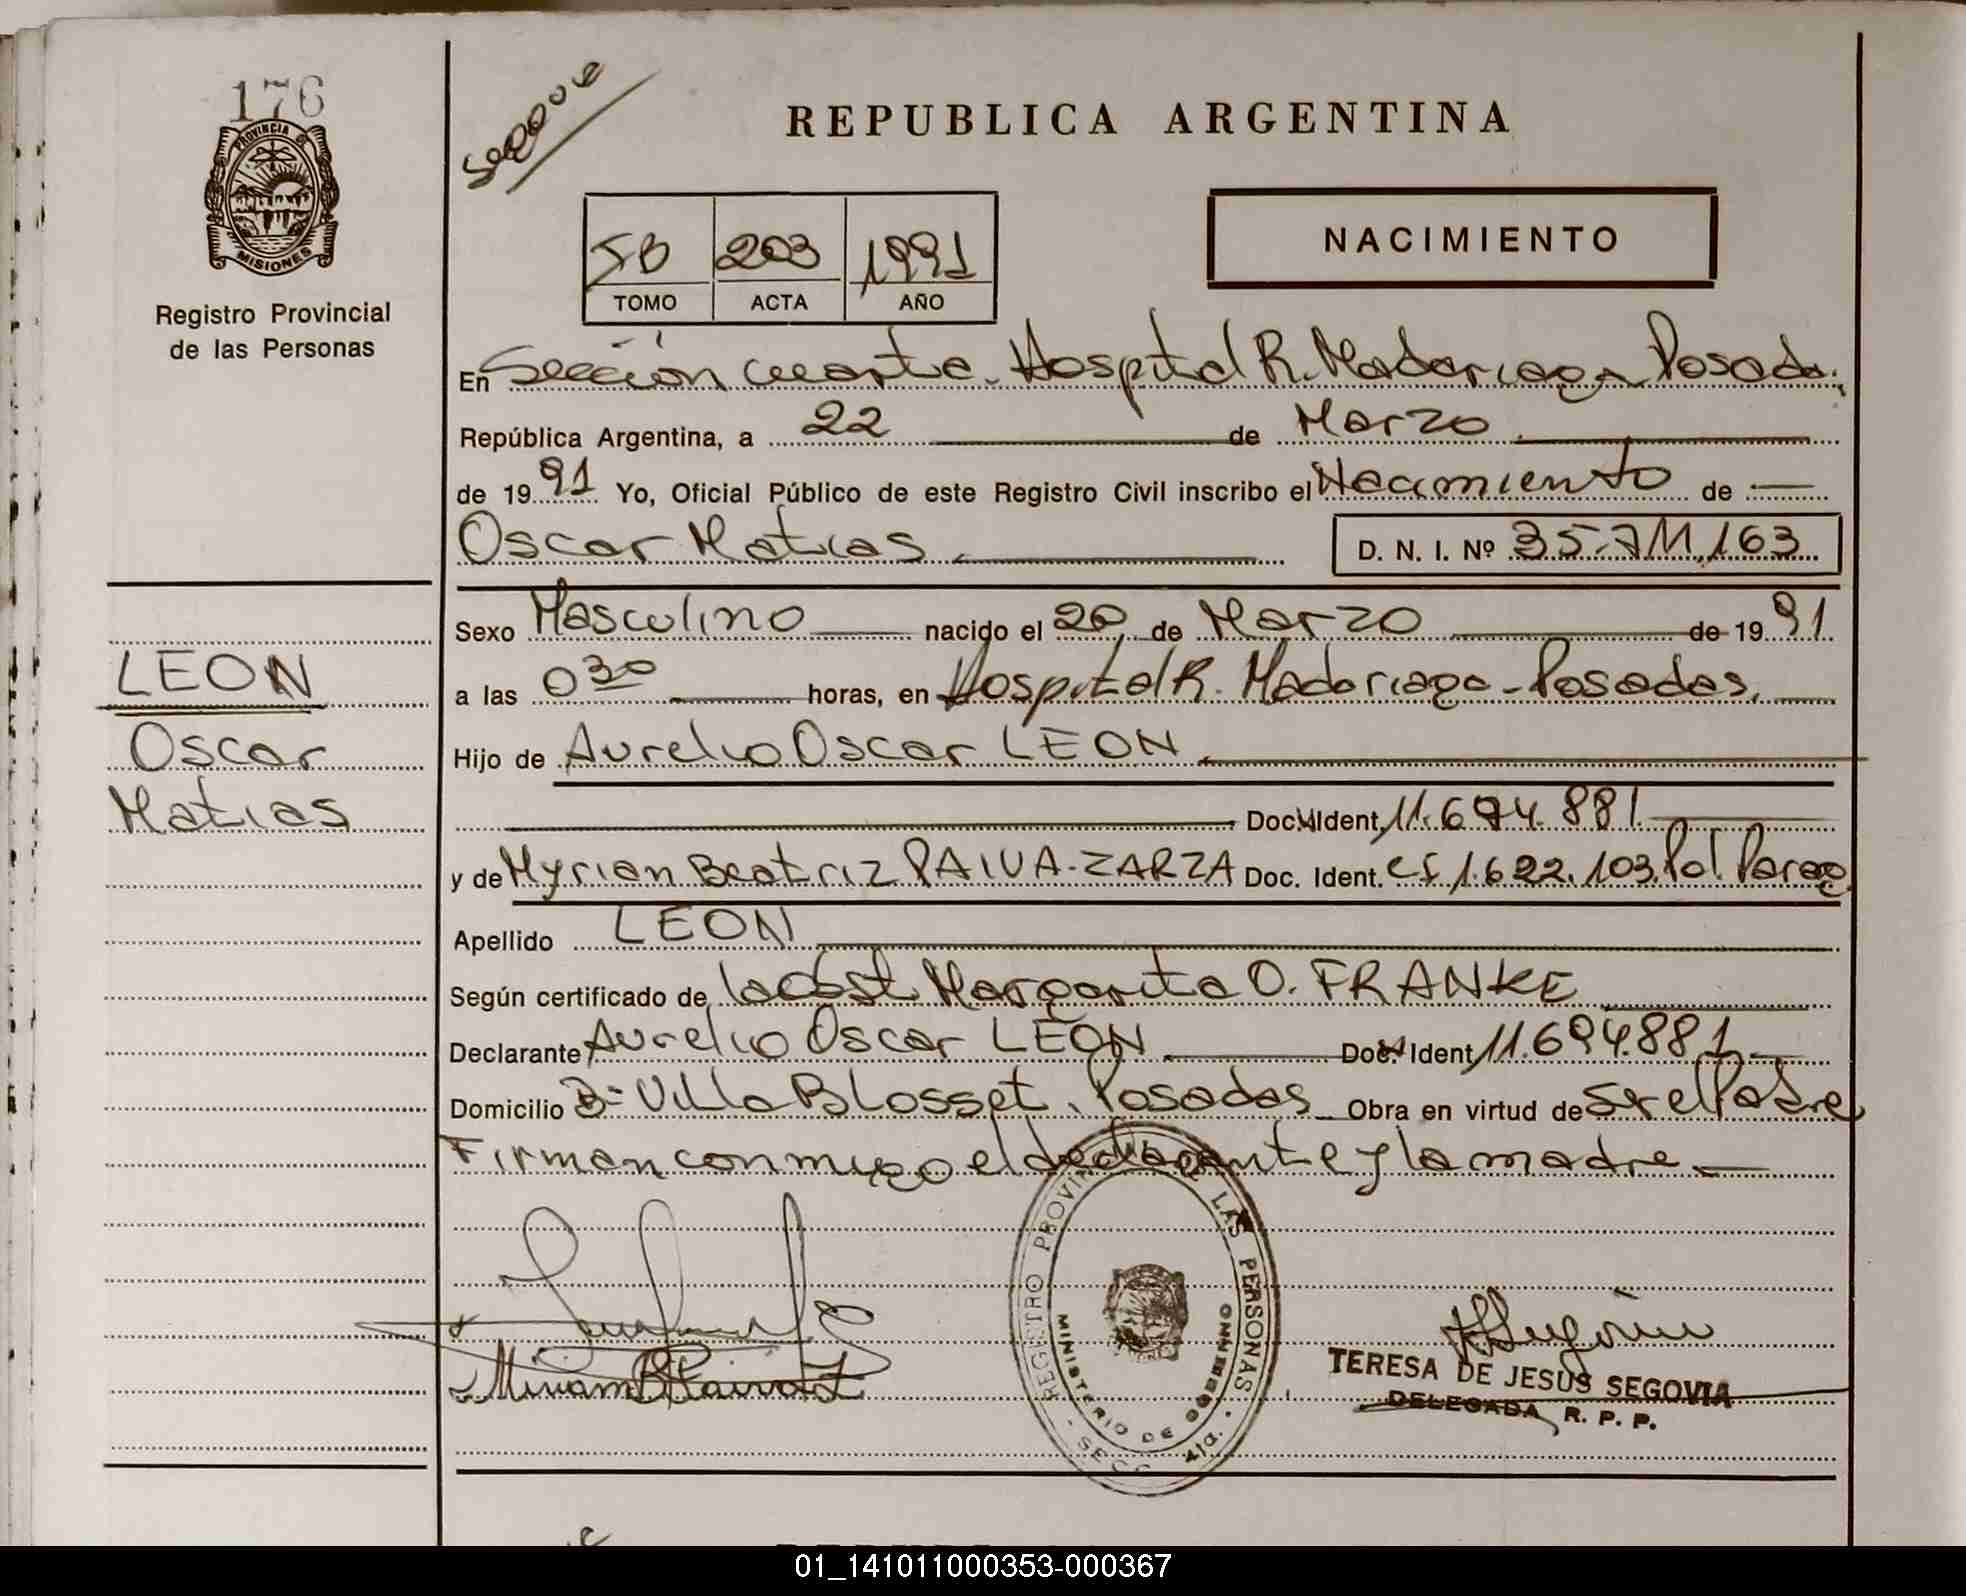 176
PROVINCIA DE
MISIONES
Registro Provincial
de las Personas
REPUBLICA ARGENTINA
NACIMIENTO
5B 203 1991
TOMO ACTA AÑO
En Sección cuarta. Hospital R. Madariaga Posadas
República Argentina, a 22 de Marzo
de 1991 Yo, Oficial Público de este Registro Civil inscribo el Nacimiento de
Oscar Matias D. N. I. Nº 35.711.163
Sexo Masculino nacido el 20 de Marzo de 1991
a las 0 30 horas, en Hospital R. Madariaga - Posadas.
Hijo de Aurelio Oscar LEON
Doc. Ident. 11.694.881
y de Myrian Beatriz PAIVA-ZARZA Doc. Ident. CI 1.622.103 Pol. Parag
Apellido LEON
Según certificado de la Obst. Margarita O. FRANKE
Declarante Aurelio Oscar LEON Doc. Ident. 11.694.881
Domicilio Bº Villa Blosset. Posadas Obra en virtud de ser el Padre
Firman conmigo el declarante y la madre
LEON
Oscar
Matias
REGISTRO PROVINCIAL DE LAS PERSONAS
MINISTERIO DE GOBIERNO
SECC 4ta.
TERESA DE JESUS SEGOVIA
DELEGADA R. P. P.
01_141011000353-000367